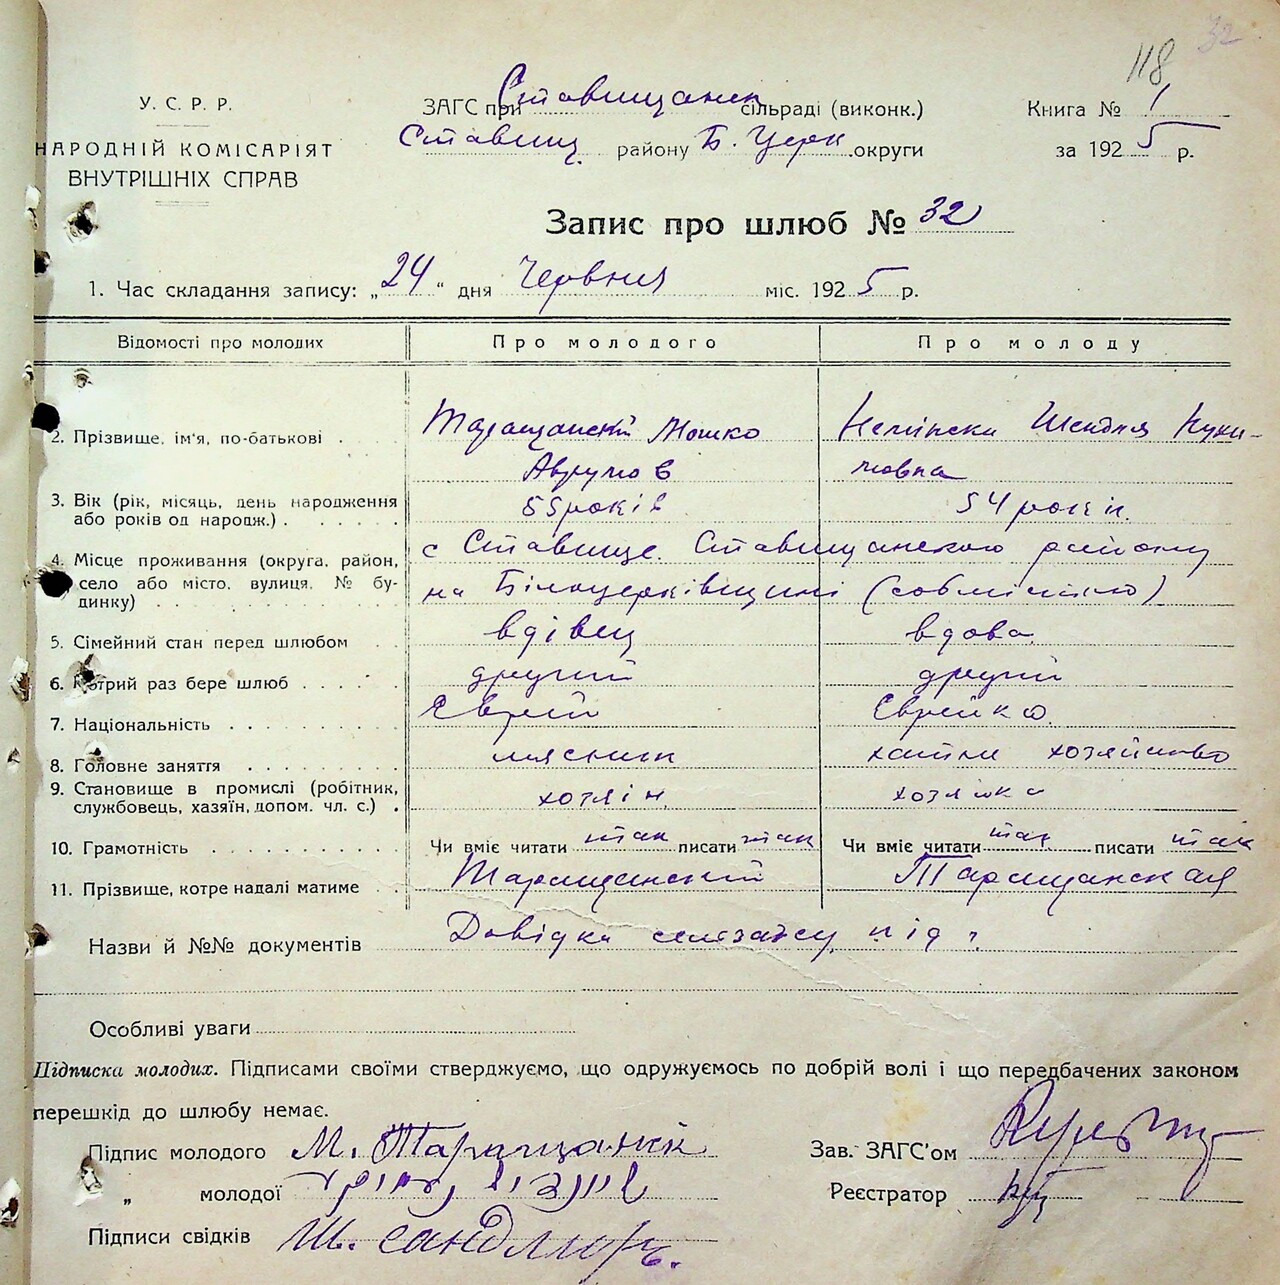 118 32
У. С. Р. Р.
НАРОДНІЙ КОМІСАРІЯТ
ВНУТРІШНІХ СПРАВ
ЗАГС при Ставищанск сільраді (виконк.)
Ставищ. району Б. Церк. округи
Книга № 1
за 1925 р.
Запис про шлюб № 32
1. Час складання запису: „24“ дня Червня міс. 1925 р.
Відомості про молодих Про молодого Про молоду
2. Прізвище, ім'я, по-батькові . Таращанскій Мошко
Аврумов
3. Вік (рік, місяць, день народження
або років од народж.) . . . . . . 55 років 54 роки.
4. Місце проживання (округа, район,
село або місто, вулиця, № бу-
динку) . . . . . . . . . .
с Ставище Ставищанского району
на Білоцерківщині
5. Сімейний стан перед шлюбом . . вдівец вдова
6. Котрий раз бере шлюб . . . . . другий другий
7. Національність . . . . . . . . . Єврей Єврейка
8. Головне заняття . . . . . . . . мясник хатнє хозяйство
9. Становище в промислі (робітник,
службовець, хазяїн, допом. чл. с.) . хозяін хозяйка
10. Грамотність . . . . . . . . . . Чи вміє читати так писати так Чи вміє читати так писати так
11. Прізвище, котре надалі матиме . . Таращанский Таращанская
Назви й №№ документів Довідка
Особливі уваги
Підписка молодих. Підписами своїми стверджуємо, що одружуємось по добрій волі і що передбачених законом
перешкід до шлюбу немає.
Підпис молодого М. Таращанскій Зав. ЗАГС'ом
„ молодої Реєстратор
Підписи свідків Ш. Сандлюръ.